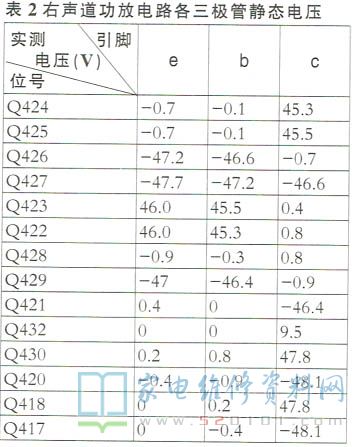 表2右声道功放电路各三极管静态电压
实测电压(V) 引脚 位号 e b c
Q424 -0.7 -0.1 45.3
Q425 -0.7 -0.1 45.5
Q426 -47.2 -46.6 -0.7
Q427 -47.7 -47.2 -46.6
Q423 46.0 45.5 0.4
Q422 46.0 45.3 0.8
Q428 -0.9 -0.3 0.8
Q429 -47 -46.4 -0.9
Q421 0.4 0 -46.4
Q432 0 0 9.5
Q430 0.2 0.8 47.8
Q420 -0.4 -0.9 -48.1
Q418 0 0.2 47.8
Q417 0 -0.4 -48.1
家电维修资料网